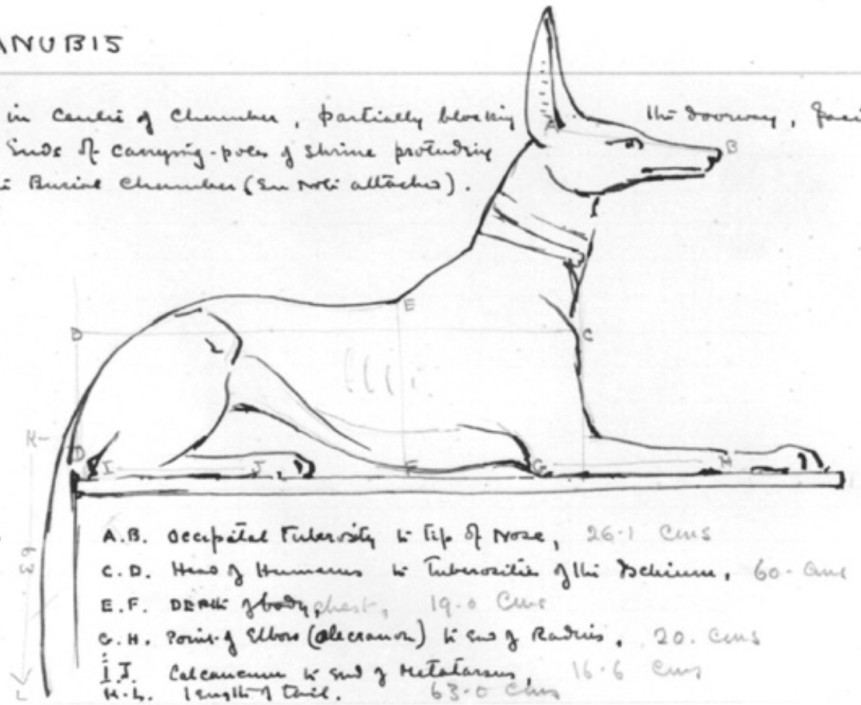 ANUBIS
in centre of Chamber, partially blocking the doorway, faci
Ends of carrying-poles of shrine protruding
Burial Chamber (see Note attached).
A
B
E
D
C
K
D
I
J
F
G
H
63
L
A.B. Occipital Tuberosity to tip of Nose, 26.1 Cms
C.D. Head of Humerus to Tuberosities of the Ischium, 60. Cms
E.F. Depth of body, chest, 19.0 Cms
G.H. Point of Elbow (olecranon) to end of Radius, 20. Cms
I.J. Calcaneum to end of Metatarsus, 16.6 Cms
K.L. length of tail. 63.0 Cms